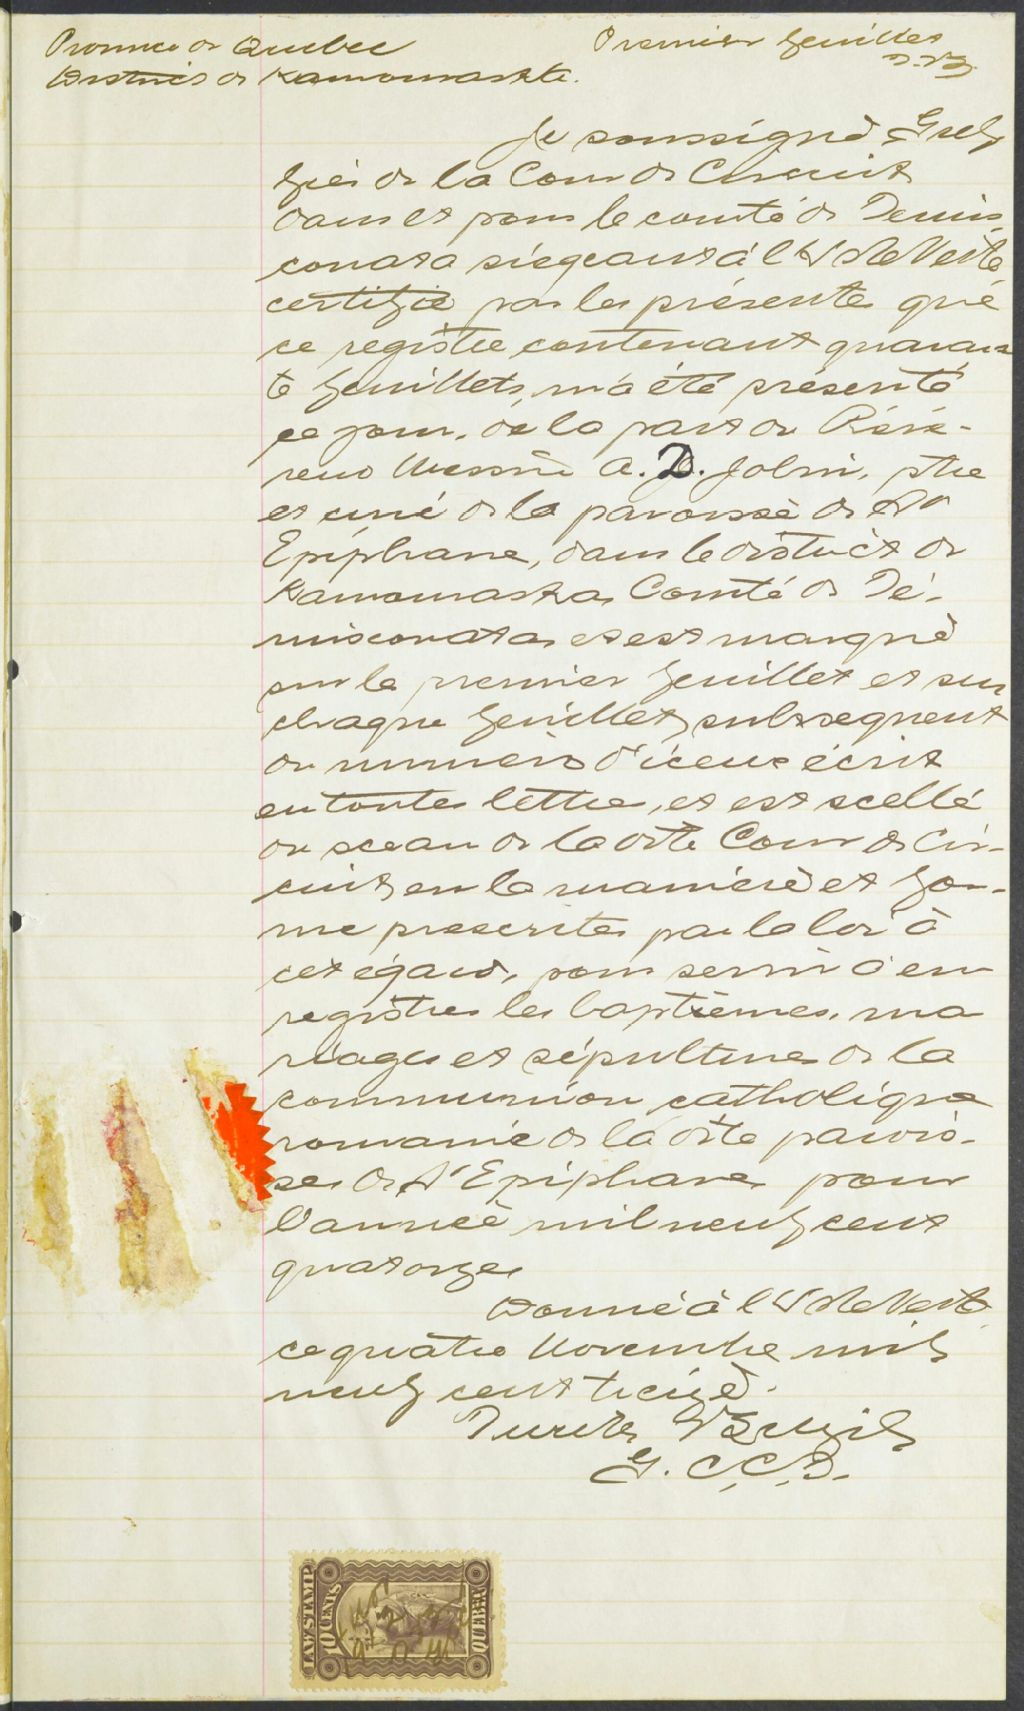 Province de Quebec
District de Kamouraska.
Premier feuillet
Je soussigné, Gref
fier de la Cour de Circuit
dans et pour le comté de Témis
couata siégeant à l'Isle Verte
certifie par les présentes que
ce registre contenant quaran
te feuillets, m'a été présenté
ce jour, de la part du Révé-
rend Messire A. D. Jobin, ptre
et curé de la paroisse de St
Epiphane, dans le district de
Kamouraska, Comté de Té-
miscouata, et est marqué
sur le premier feuillet et sur
chaque feuillet, subsequent
du numéro d'iceux écrit
en toutes lettres, et est scellé
du sceau de la dite Cour de Cir-
cuit, en la manière et for-
me prescrites par la loi à
cet égard, pour servir à en
registrer les baptèmes, ma
riages et sépultures de la
communion catholique
romaine de la dite parois-
se, de St Epiphane, pour
l'année mil neuf cent
quatorze.
Donné à l'Isle Verte
ce quatre Novembre mil
neuf cent treize.
G. C. C. D.
LAW STAMP
10 CENTS
QUEBEC